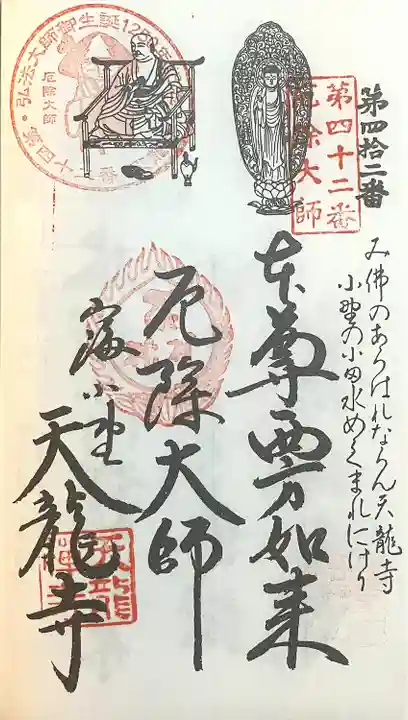 第四拾二番
第四十二番
厄除大師
み佛のあらはれならん天龍寺
小野の小田水めぐまれにけり
本尊 西方如来
厄除大師
天龍寺
弘法大師御生誕1250年
厄除大師
第四十二番